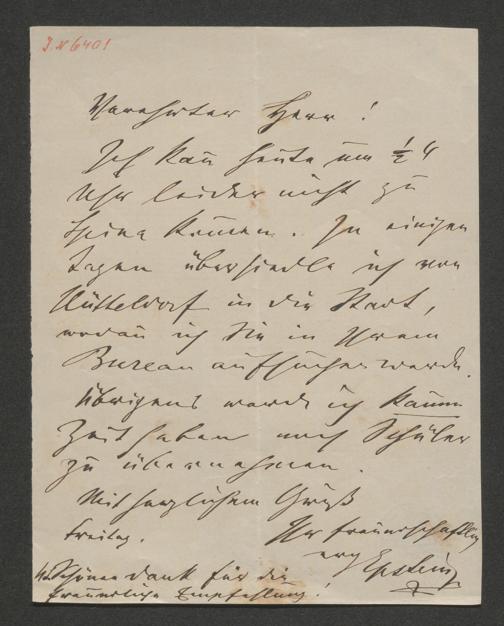 I.N 6401
Verehrter Herr!
Ich kan̄ heute um ½ 4
Uhr leider nicht zu
Ihnen kommen. In einigen
Tagen übersiedle ich von
Hütteldorf in die Stadt,
wodan̄ ich Sie in Ihrem
Bureau aufsuchen werde.
Übrigens werde ich kaum
Zeit haben noch Schüler
zu übernehmen.
Mit herzlichem Gruß
Freitag. Ihr freundschaftlich
erg Epstein
Schönen Dank für die
freundliche Empfehlung!